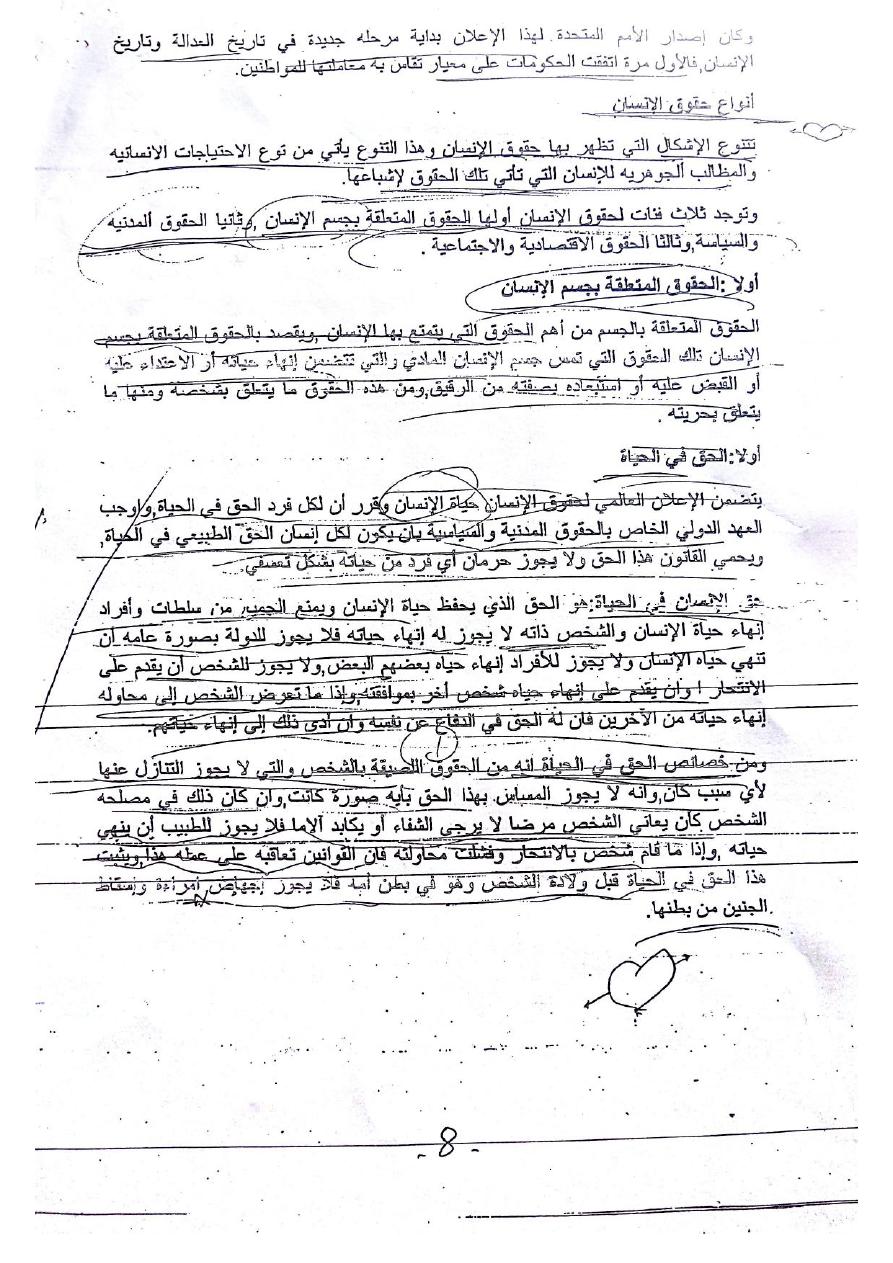 وكان إصدار الأمم المتحدة لهذا الإعلان بداية مرحله جديدة في تاريخ العدالة وتاريخ
الإنسان,فالأول مرة اتفقت الحكومات على معيار تقاس به معاملتها للمواطنين.
أنواع حقوق الإنسان
تتنوع الإشكال التي تظهر بها حقوق الإنسان وهذا التنوع يأتي من توع الاحتياجات الانسانيه
والمطالب الجوهريه للإنسان التي تأتي تلك الحقوق لإشباعها.
وتوجد ثلاث فئات لحقوق الإنسان أولها الحقوق المتعلقة بجسم الإنسان ,وثانيا الحقوق المدنيه
والسياسة,وثالثا الحقوق الاقتصادية والاجتماعية .
أولا :الحقوق المتعلقة بجسم الإنسان
الحقوق المتعلقة بالجسم من أهم الحقوق التي يتمتع بها الإنسان ,ويقصد بالحقوق المتعلقة بجسم
الإنسان تلك الحقوق التي تمس جسم الإنسان المادي والتي تتضمن إنهاء حياته أو الاعتداء عليه
أو القبض عليه أو استبعاده بصفته من الرقيق,ومن هذه الحقوق ما يتعلق بشخصه ومنها ما
يتعلق بحريته .
أولا:الحق في الحياة
يتضمن الإعلان العالمي لحقوق الإنسان حياة الإنسان وقرر أن لكل فرد الحق في الحياة,واوجب
العهد الدولي الخاص بالحقوق المدنية والسياسية بان يكون لكل إنسان الحق الطبيعي في الحياة,
ويحمي القانون هذا الحق ولا يجوز حرمان أي فرد من حياته بشكل تعسفي.
حق الإنسان في الحياة:هو الحق الذي يحفظ حياة الإنسان ويمنع الجميع من سلطات وأفراد
إنهاء حياة الإنسان والشخص ذاته لا يجوز له إنهاء حياته فلا يجوز للدولة بصورة عامه أن
تنهي حياه الإنسان ولا يجوز للأفراد إنهاء حياه بعضهم البعض,ولا يجوز للشخص أن يقدم على
الانتحار ا وان يقدم على إنهاء حياه شخص أخر بموافقته,وإذا ما تعرض الشخص إلى محاوله
إنهاء حياته من الآخرين فان له الحق في الدفاع عن نفسه وان أدى ذلك إلى إنهاء حياتهم.
ومن خصائص الحق في الحياة انه من الحقوق اللصيقة بالشخص والتي لا يجوز التنازل عنها
لأي سبب كان,وانه لا يجوز المساس بهذا الحق بأيه صورة كانت,وان كان ذلك في مصلحه
الشخص كان يعاني الشخص مرضا لا يرجى الشفاء أو يكابد آلاما فلا يجوز للطبيب إن ينهي
حياته ,وإذا ما قام شخص بالانتحار وفشلت محاولته فان القوانين تعاقبه على عمله هذا,ويثبت
هذا الحق في الحياة قبل ولادة الشخص وهو في بطن أمه فلا يجوز إجهاض امراءة وإسقاط
الجنين من بطنها.
- 8 -